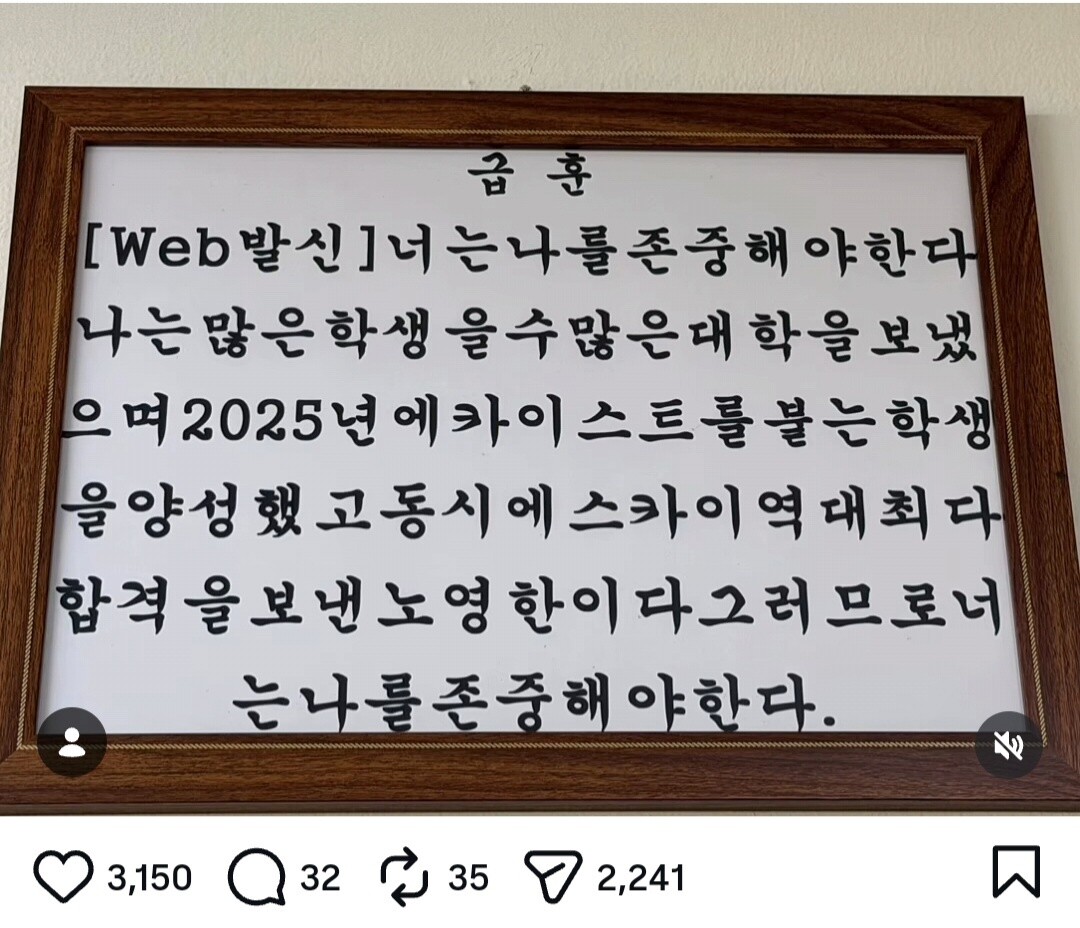 급 훈
[Web발신]너는나를존중해야한다
나는많은학생을수많은대학을보냈
으며2025년에카이스트를붙는학생
을양성했고동시에스카이역대최다
합격을보낸노영한이다그러므로너
는나를존중해야한다.
3,150 32 35 2,241